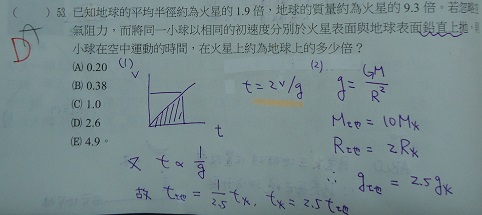 ( ) 53 已知地球的平均半徑約為火星的 1.9 倍,地球的質量約為火星的 9.3 倍。若忽略
氣阻力,而將同一小球以相同的初速度分別於火星表面與地球表面鉛直上拋,
小球在空中運動的時間,在火星上約為地球上的多少倍?
D A
(A) 0.20
(B) 0.38
(C) 1.0
(D) 2.6
(E) 4.9。
(1)
V
t
t = 2v/g
又 t ∝ 1/g
故 t地 = 1/2.5 t火, t火 = 2.5 t地
(2)
g = GM/R²
M地 = 10M火
R地 = 2R火
∴ g地 = 2.5g火